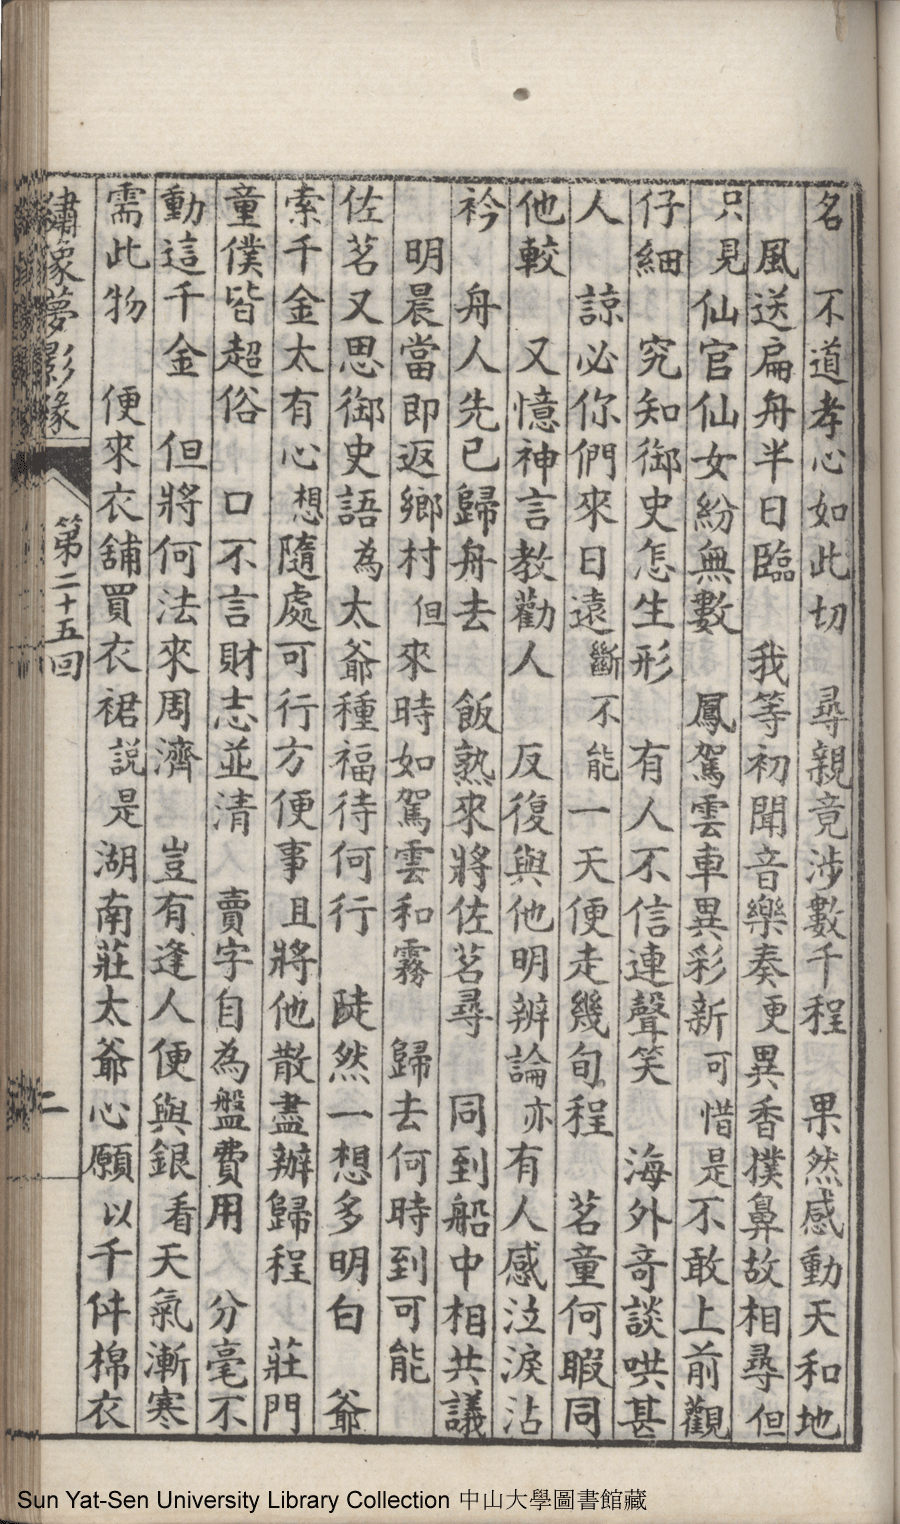 名　不道孝心如此切　尋親竟涉數千程　果然感動天和地
　風送扁舟半日臨　我等初聞音樂奏更異香撲鼻故相尋但
只見仙官仙女紛無數　鳳駕雲車異彩新可惜是不敢上前觀
仔細　究知御史怎生形　有人不信連聲笑　海外奇談哄甚
人　諒必你們來日遠斷不能一天便走幾旬程　茗童何暇同
他較　又憶神言教勸人　反復與他明辨論亦有人感泣淚沾
衿　舟人先已歸舟去　飯熟來將佐茗尋　同到船中相共議
　明晨當即返鄉村但來時如駕雲和霧　歸去何時到可能
佐茗又思御史語為太爺種福待何行　陡然一想多明白　爺
索千金太有心想隨處可行方便事且將他散盡辦歸程　莊門
童僕皆超俗　口不言財志並清　賣字自為盤費用　分毫不
動這千金　但將何法來周濟　豈有逢人便與銀看天氣漸寒
需此物　便來衣舖買衣裙說是湖南莊太爺心願以千件棉衣
繡像夢影緣　第二十五回　二
Sun Yat-Sen University Library Collection 中山大學圖書館藏